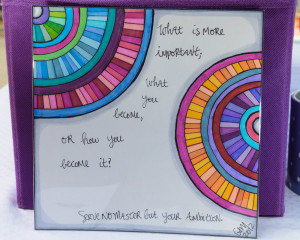 What is more
important,
what
you
become,
or how you
become it?
Serve no master but your ambition.